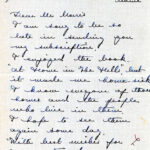 Dear Mr Moore
I am sorry to be so
late in sending you
my subscription.
I enjoyed the book,
"At Home in The Hills" but
it made me home sick
I know everyone of those
homes and the people
who live in them
I hope to see them
again some day.
With best wishes for